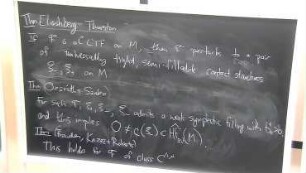 Thm Eliashberg - Thurston
If F is a C² CTF on M, then F perturbs to a pair
of universally tight, semi-fillable contact structures
ξ₊, ξ₋ on M
Thm Ozsváth - Szabó
For such F, ξ₊, ξ₋ admits a weak symplectic filling with
and thus implies 0 ≠ c(ξ) ⊂ HF(M)
Thm (Kazez + Roberts)
This holds for F of class